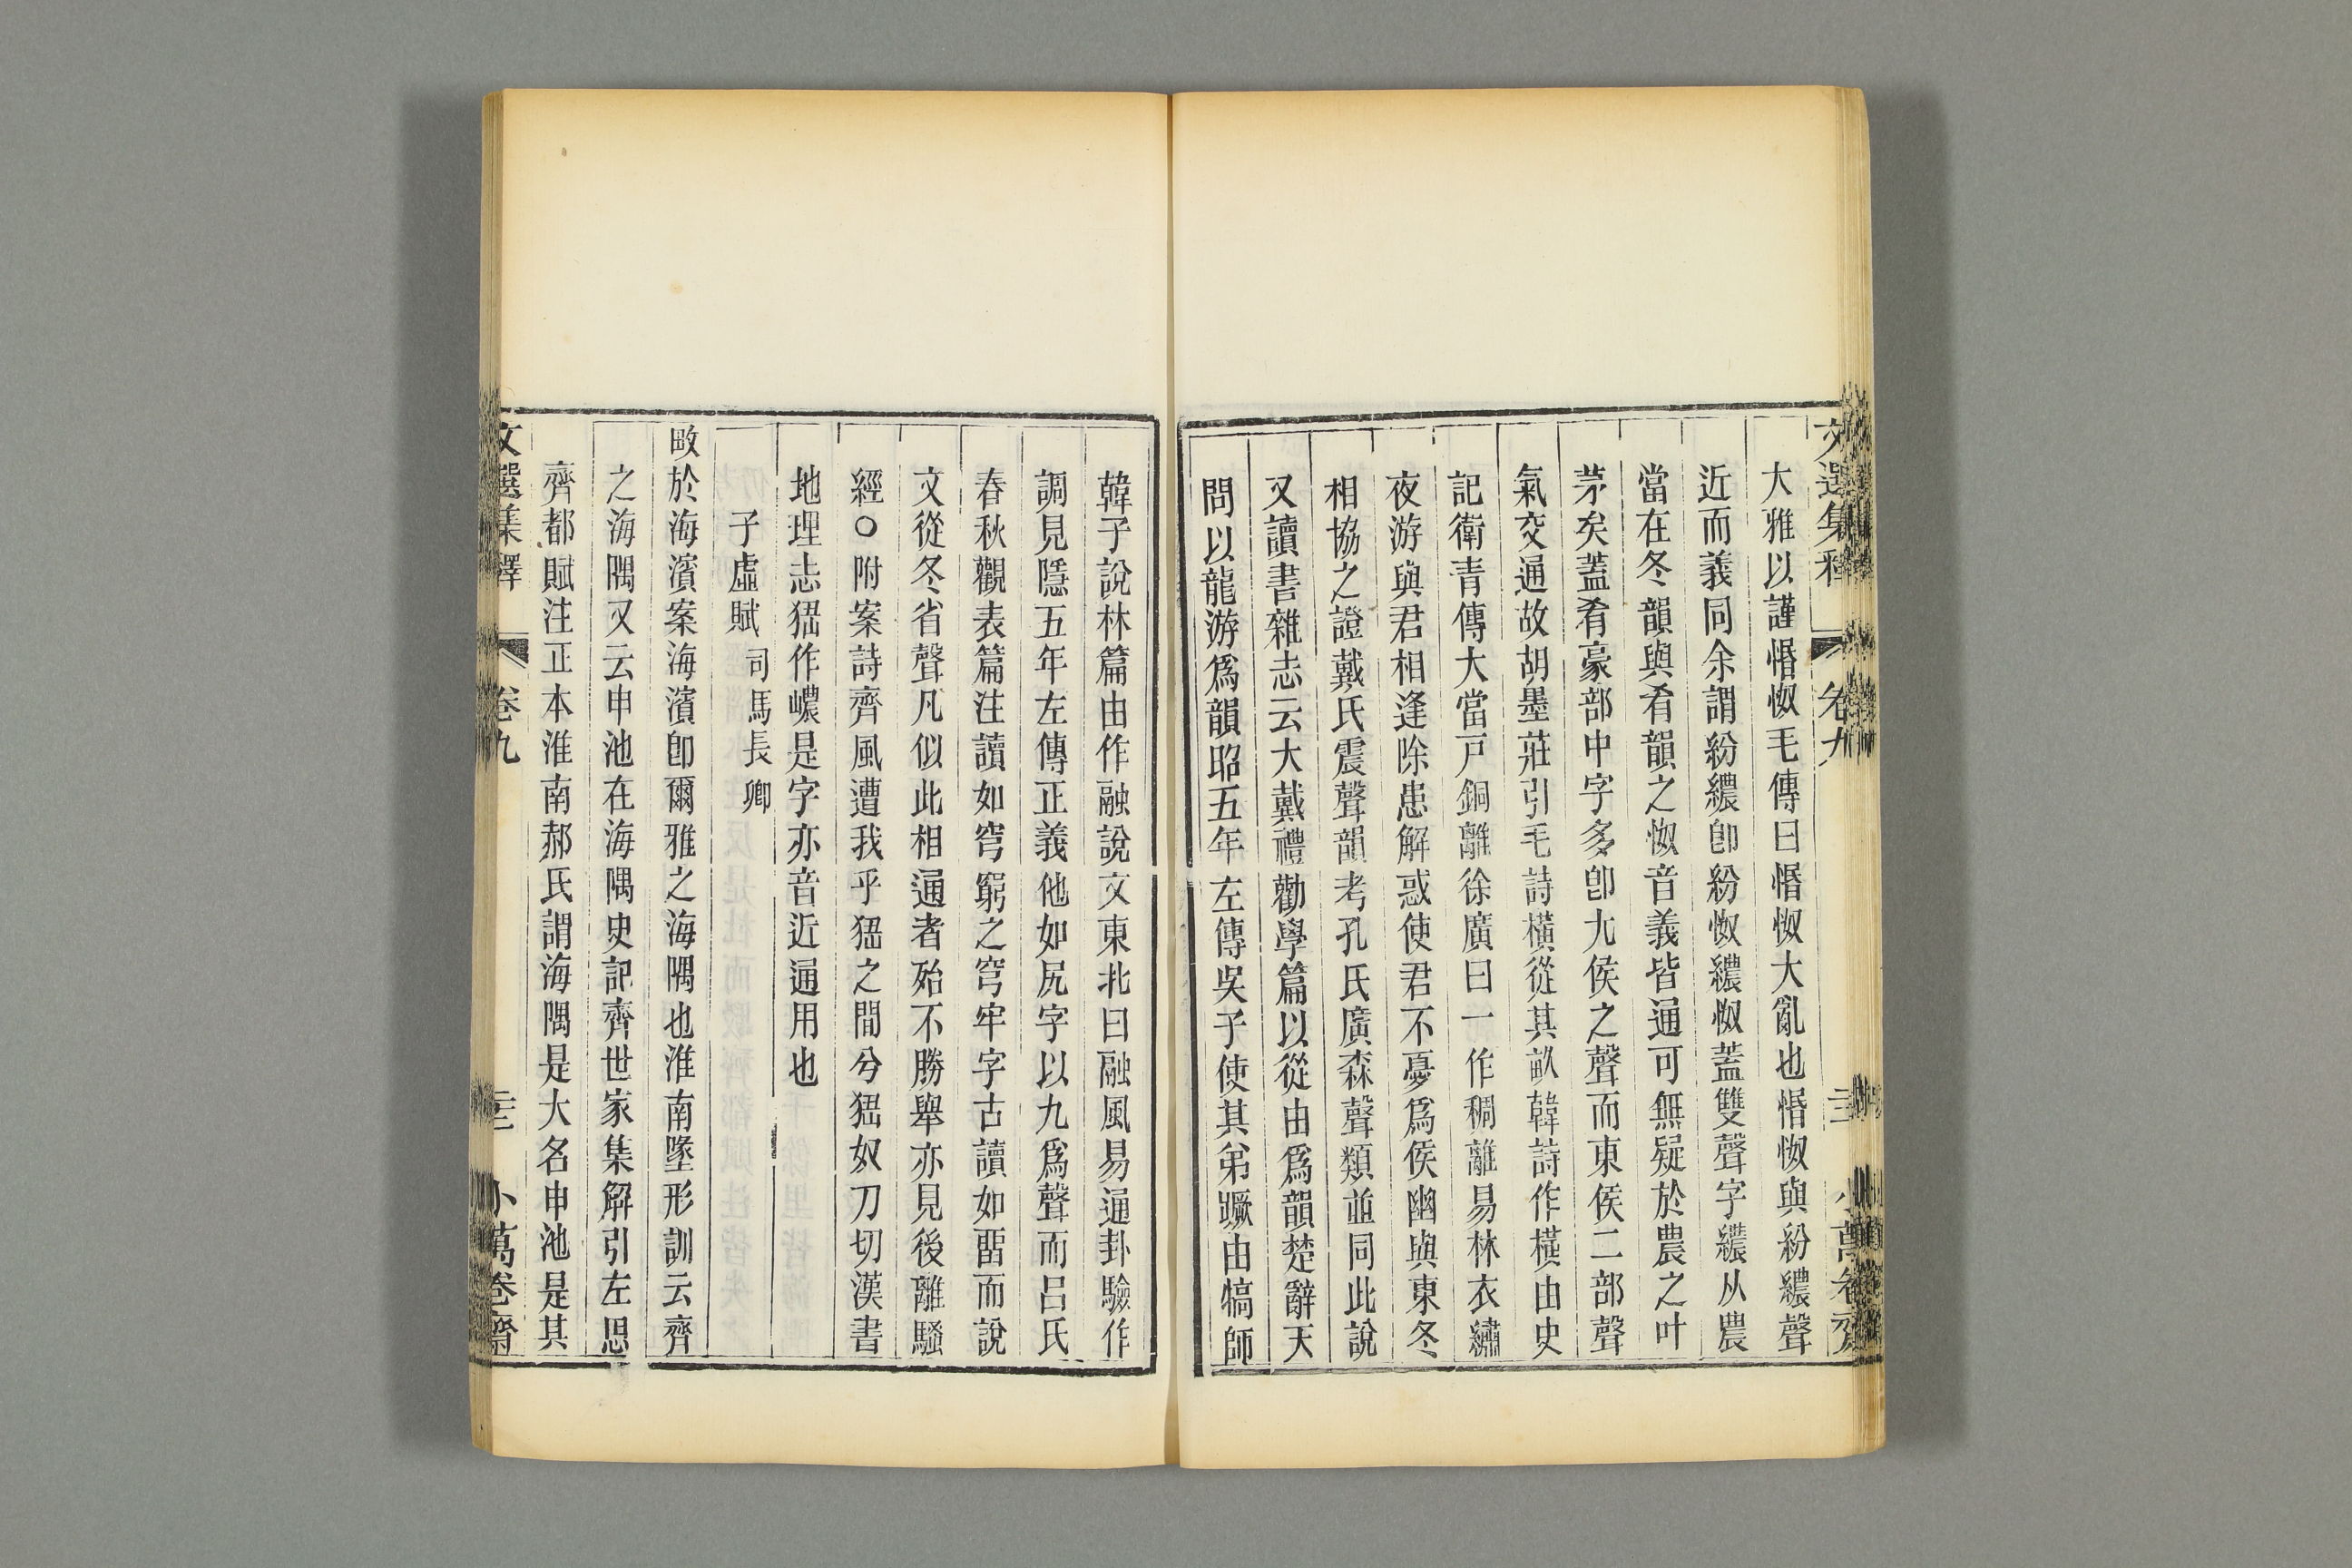 文選集釋 卷九 小萬卷齋
大雅以謹惽怓毛傳曰惽怓大亂也惽怓與紛繷聲
近而義同余謂紛繷卽紛怓繷怓蓋雙聲字繷从農
當在冬韻與肴韻之怓音義皆通可無疑於農之叶
茅矣蓋肴豪部中字多卽尢侯之聲而東侯二部聲
氣交通故胡墨莊引毛詩橫從其畝韓詩作橫由史
記衞青傳大當戸銅離徐廣曰一作稠離易林衣繡
夜游與君相逢除患解惑使君不憂爲侯幽與東冬
相協之證戴氏震聲韻考孔氏廣森聲類並同此說
又讀書雜志云大戴禮勸學篇以從由爲韻楚辭天
問以龍游爲韻昭五年左傳吳子使其弟蹶由犒師
韓子說林篇由作融說文東北曰融風易通卦驗作
調見隱五年左傳正義他如尻字以九爲聲而呂氏
春秋觀表篇注讀如穹窮之穹牢字古讀如畱而說
文從冬省聲凡似此相通者殆不勝舉亦見後離騷
經○附案詩齊風遭我乎猺之間兮猺奴刀切漢書
地理志猺作巎是字亦音近通用也
子虛賦 司馬長卿
畋於海濱案海濱卽爾雅之海隅也淮南墬形訓云齊
之海隅又云申池在海隅史記齊世家集解引左思
齊都賦注正本淮南郝氏謂海隅是大名申池是其
文選集釋 卷九 小萬卷齋